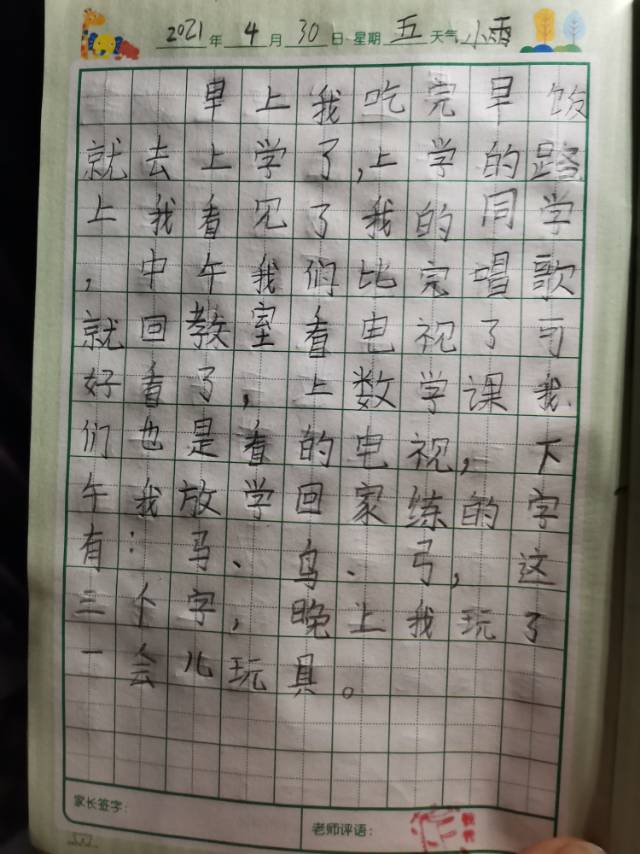 2021年4月30日 星期五 天气小雨
早上我吃完早饭
就去上学了,上学的路
上我看见了我的同学
,中午我们比完唱歌
就回教室看电视了可
好看了,上数学课我
们也是看的电视,下
午我放学回家练的字
有:马、鸟、弓,这
三个字,晚上我玩了
一会儿玩具。
家长签字:
老师评语: